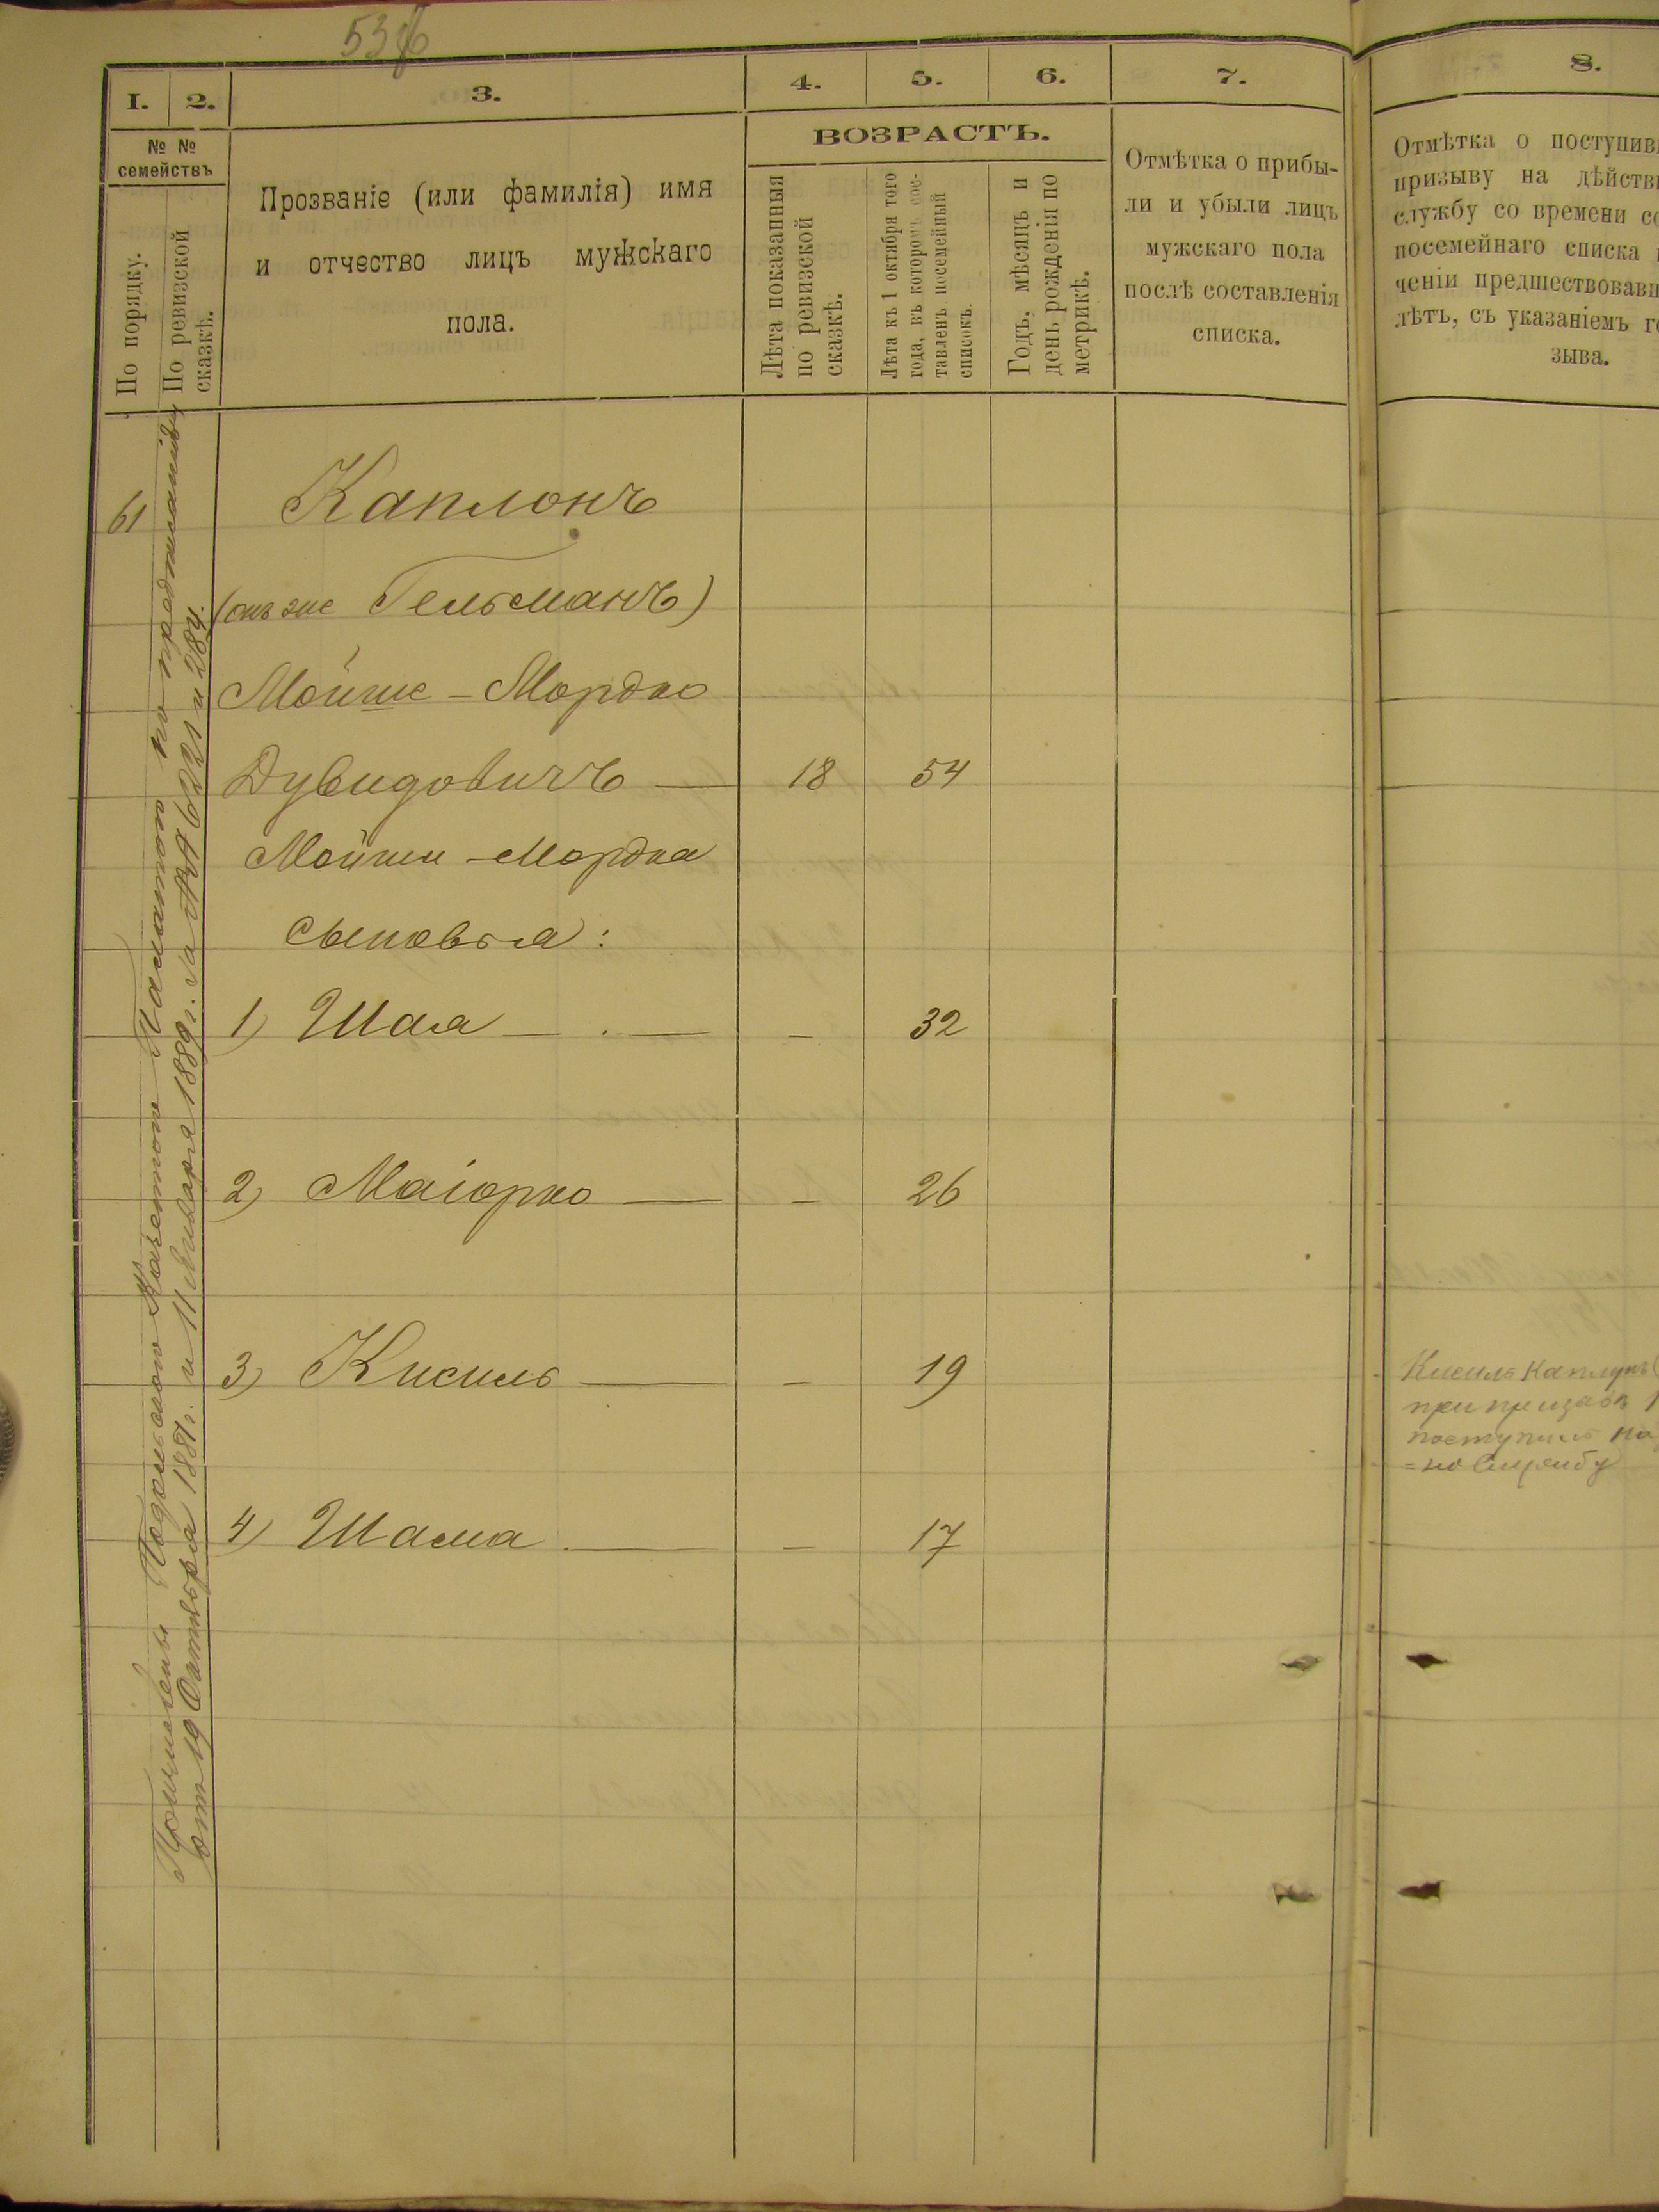 53
1.
2.
3.
4.
5.
6.
7.
8.
№ №
семействъ
По порядку.
По ревизской
сказкѣ.
Прозваніе (или фамилія) имя
и отчество лицъ мужскаго
пола.
ВОЗРАСТЪ.
Лѣта показанныя
по ревизской
сказкѣ.
Лѣта къ 1 октября того
года, въ которомъ сос-
тавленъ посемейный
списокъ.
Годъ, мѣсяцъ и
день рожденія по
метрикѣ.
Отмѣтка о прибы-
ли и убыли лицъ
мужскаго пола
послѣ составленія
списка.
Отмѣтка о поступив
призыву на дѣйств
службу со времени со
посемейнаго списка
ченіи предшествовавш
лѣтъ, съ указаніемъ го
зыва.
Причислены Подольскою Казенною Палатою по предписанію
отъ 19 Октября 1881 г. и 11 Января 1889 г. за №№ 6221 и 284.
61
Каплонъ
(онъ же Гельманъ)
Мойше - Мордко
Дувидовичъ — 18 54
Мойши - Мордка
сыновья:
1) Шая — — 32
2) Маіорко — — 26
3) Кисиль — — 19
4) Шама — — 17
Кисиль Каплунъ (
при призывѣ 1
поступилъ на
= ю службу